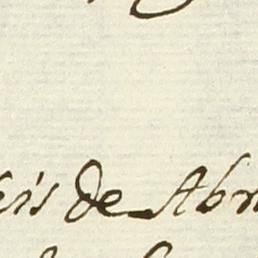 eis de Abr